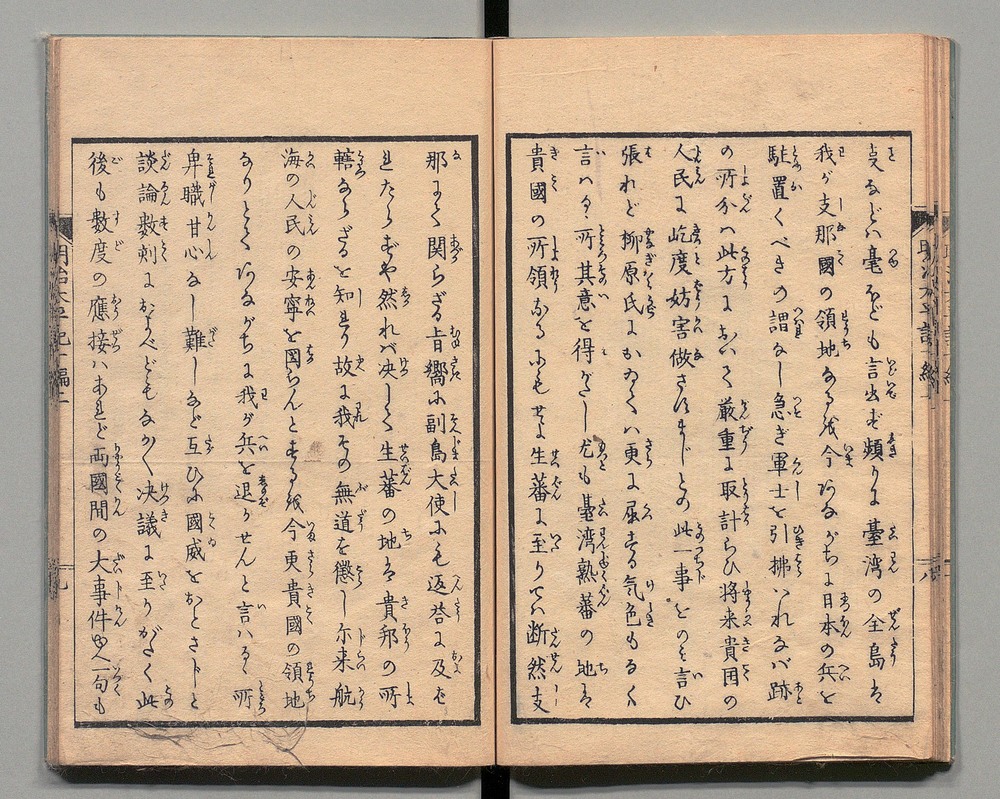 支などは毫ほども言出さず頻りに臺湾の全島は
我が支那國の領地なる然今ゐながちに日本の兵を
駐置くべきの謂なし急ぎ軍士を引拂いれるバ跡
の所分ハ此方においく厳重に取計らひ将来貴国の
人民に屹度妨害做さすまじとの此一事をのミ言ひ
張れど柳原氏にかくハ更に屈する気色もなく
言ハるゝ所其意を得がたし尤も臺湾熟蕃の地は
貴國の所領なるにもせよ生蕃に至りてハ断然支
那にて関らざる旨嚮に副島大使にも返荅に及ば
れたらずや然れバ决して生蕃の地は貴邦の所
轄ならざるを知れり故に我その無道を懲し尓来航
海の人民の安寧を図らんとする然今更貴國の領地
なりとてゐながちに我が兵を退りせんと言ハるゝ所
卑職甘心なし難しなど互ひに國威をおとさじと
談論数刺におよべどもなかく决議に至りがたく此
後も数度の應接ハあれど両國間の大事件ゆへ一句も
明治太平記十編上